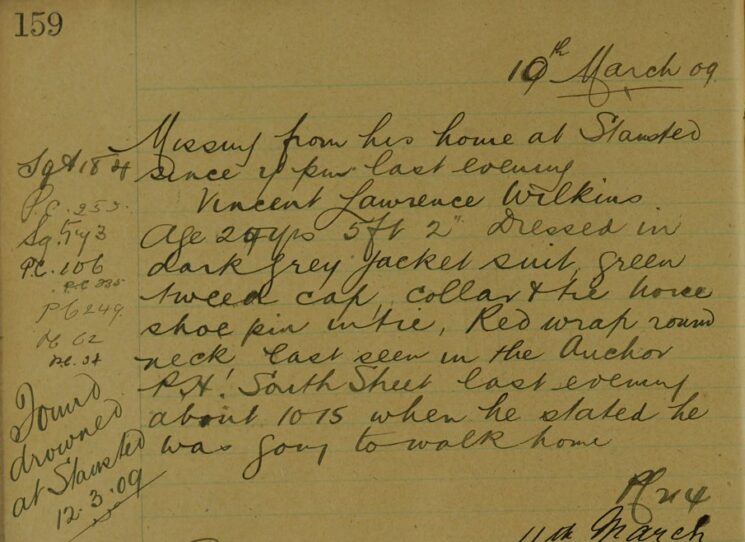 159
10th March 09
Missing from his home at Stansted
since 7 pm last evening
Vincent Lawrence Wilkins
Age 24 yrs 5ft 2" Dressed in
dark grey jacket suit, green
tweed cap, collar & tie horse
shoe pin in tie, Red wrap round
neck last seen in the Anchor
P.H. South Street last evening
about 10 15 when he stated he
was going to walk home
11th March
Sgt 184
P.C. 253.
Sgt 73
P.C. 106
P.C 335
PC 249
PC 62
P.C. 34
Found
drowned
at Stansted
12.3.09